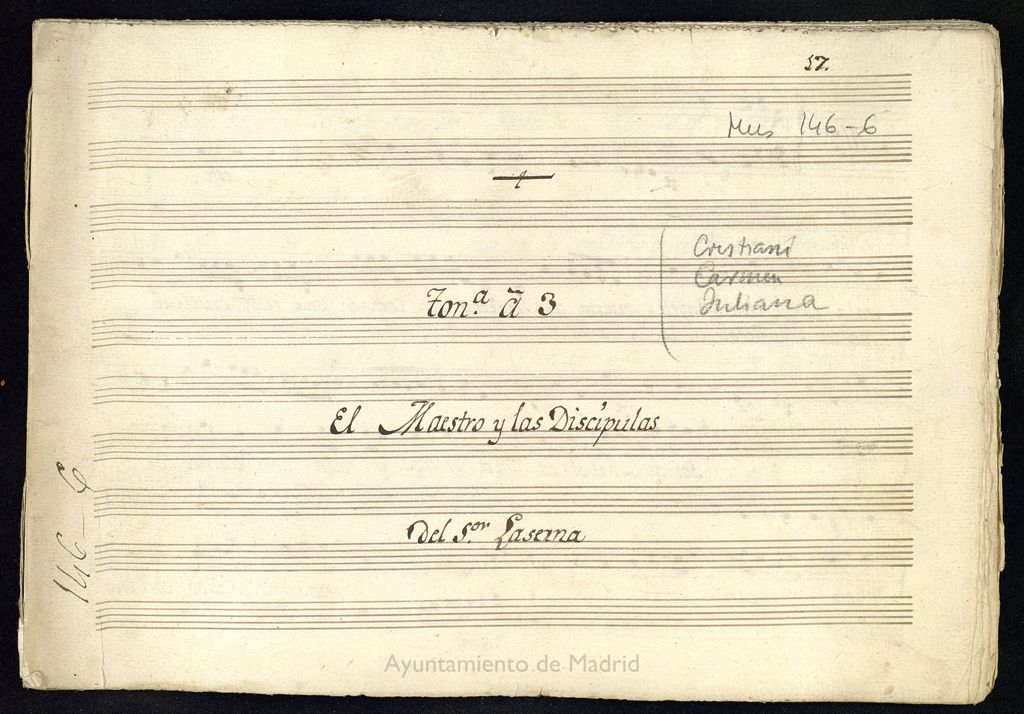 57
Mus 146-6
Cristiani
Carmen
Juliana
Ton.ª â 3
El Maestro y las Discípulas
Del S.or Laserna
146-6
Ayuntamiento de Madrid